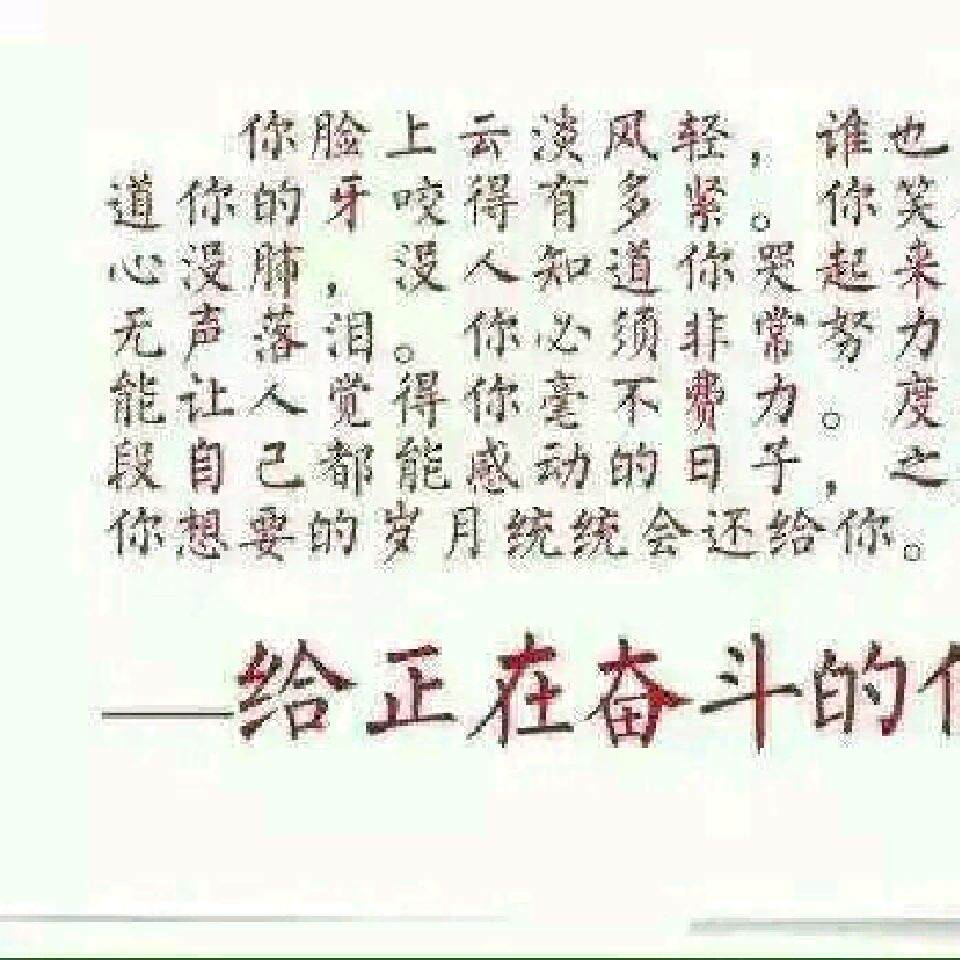 你脸上云淡风轻，谁也
道你的牙咬得有多紧。你笑
心没肺，没人知道你哭起来
无声落泪。你必须非常努力
能让人觉得你毫不费力。度
段自己都能感动的日子，之
你想要的岁月统统会还给你。
——给正在奋斗的